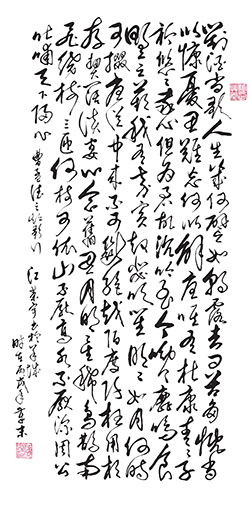 對酒當歌人生幾何譬如朝露去日苦多慨當
以慷憂思難忘何以解憂唯有杜康青青子
衿悠悠我心但為君故沉吟至今呦呦鹿鳴食
野之苹我有嘉賓鼓瑟吹笙明明如月何時
可掇憂從中來不可斷絕越陌度阡枉用相
存契闊談宴心念舊恩月明星稀烏鵲南
飛繞樹三匝何枝可依山不厭高水不厭深周公
吐哺天下歸心 曹孟德之短歌行 江 書於羊城
時在丙戌年